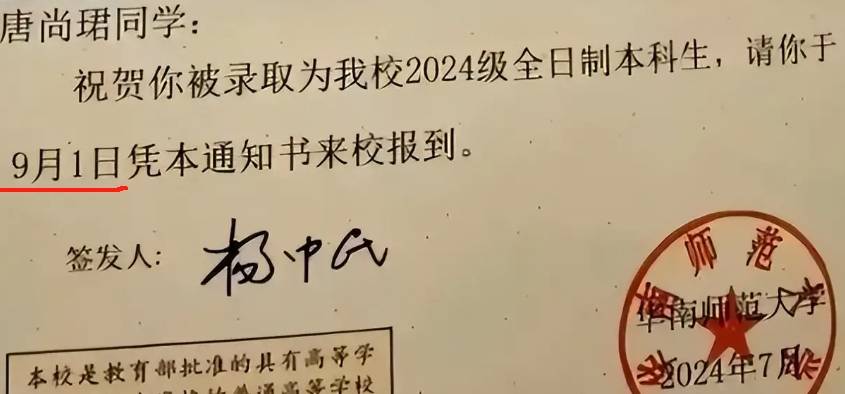 唐尚珺同学：
祝贺你被录取为我校2024级全日制本科生，请你于
9月1日凭本通知书来校报到。
签发人：杨中民
华南师范大学
华南师范大学
2024年7月
本校是教育部批准的具有高等学
普通高等学校